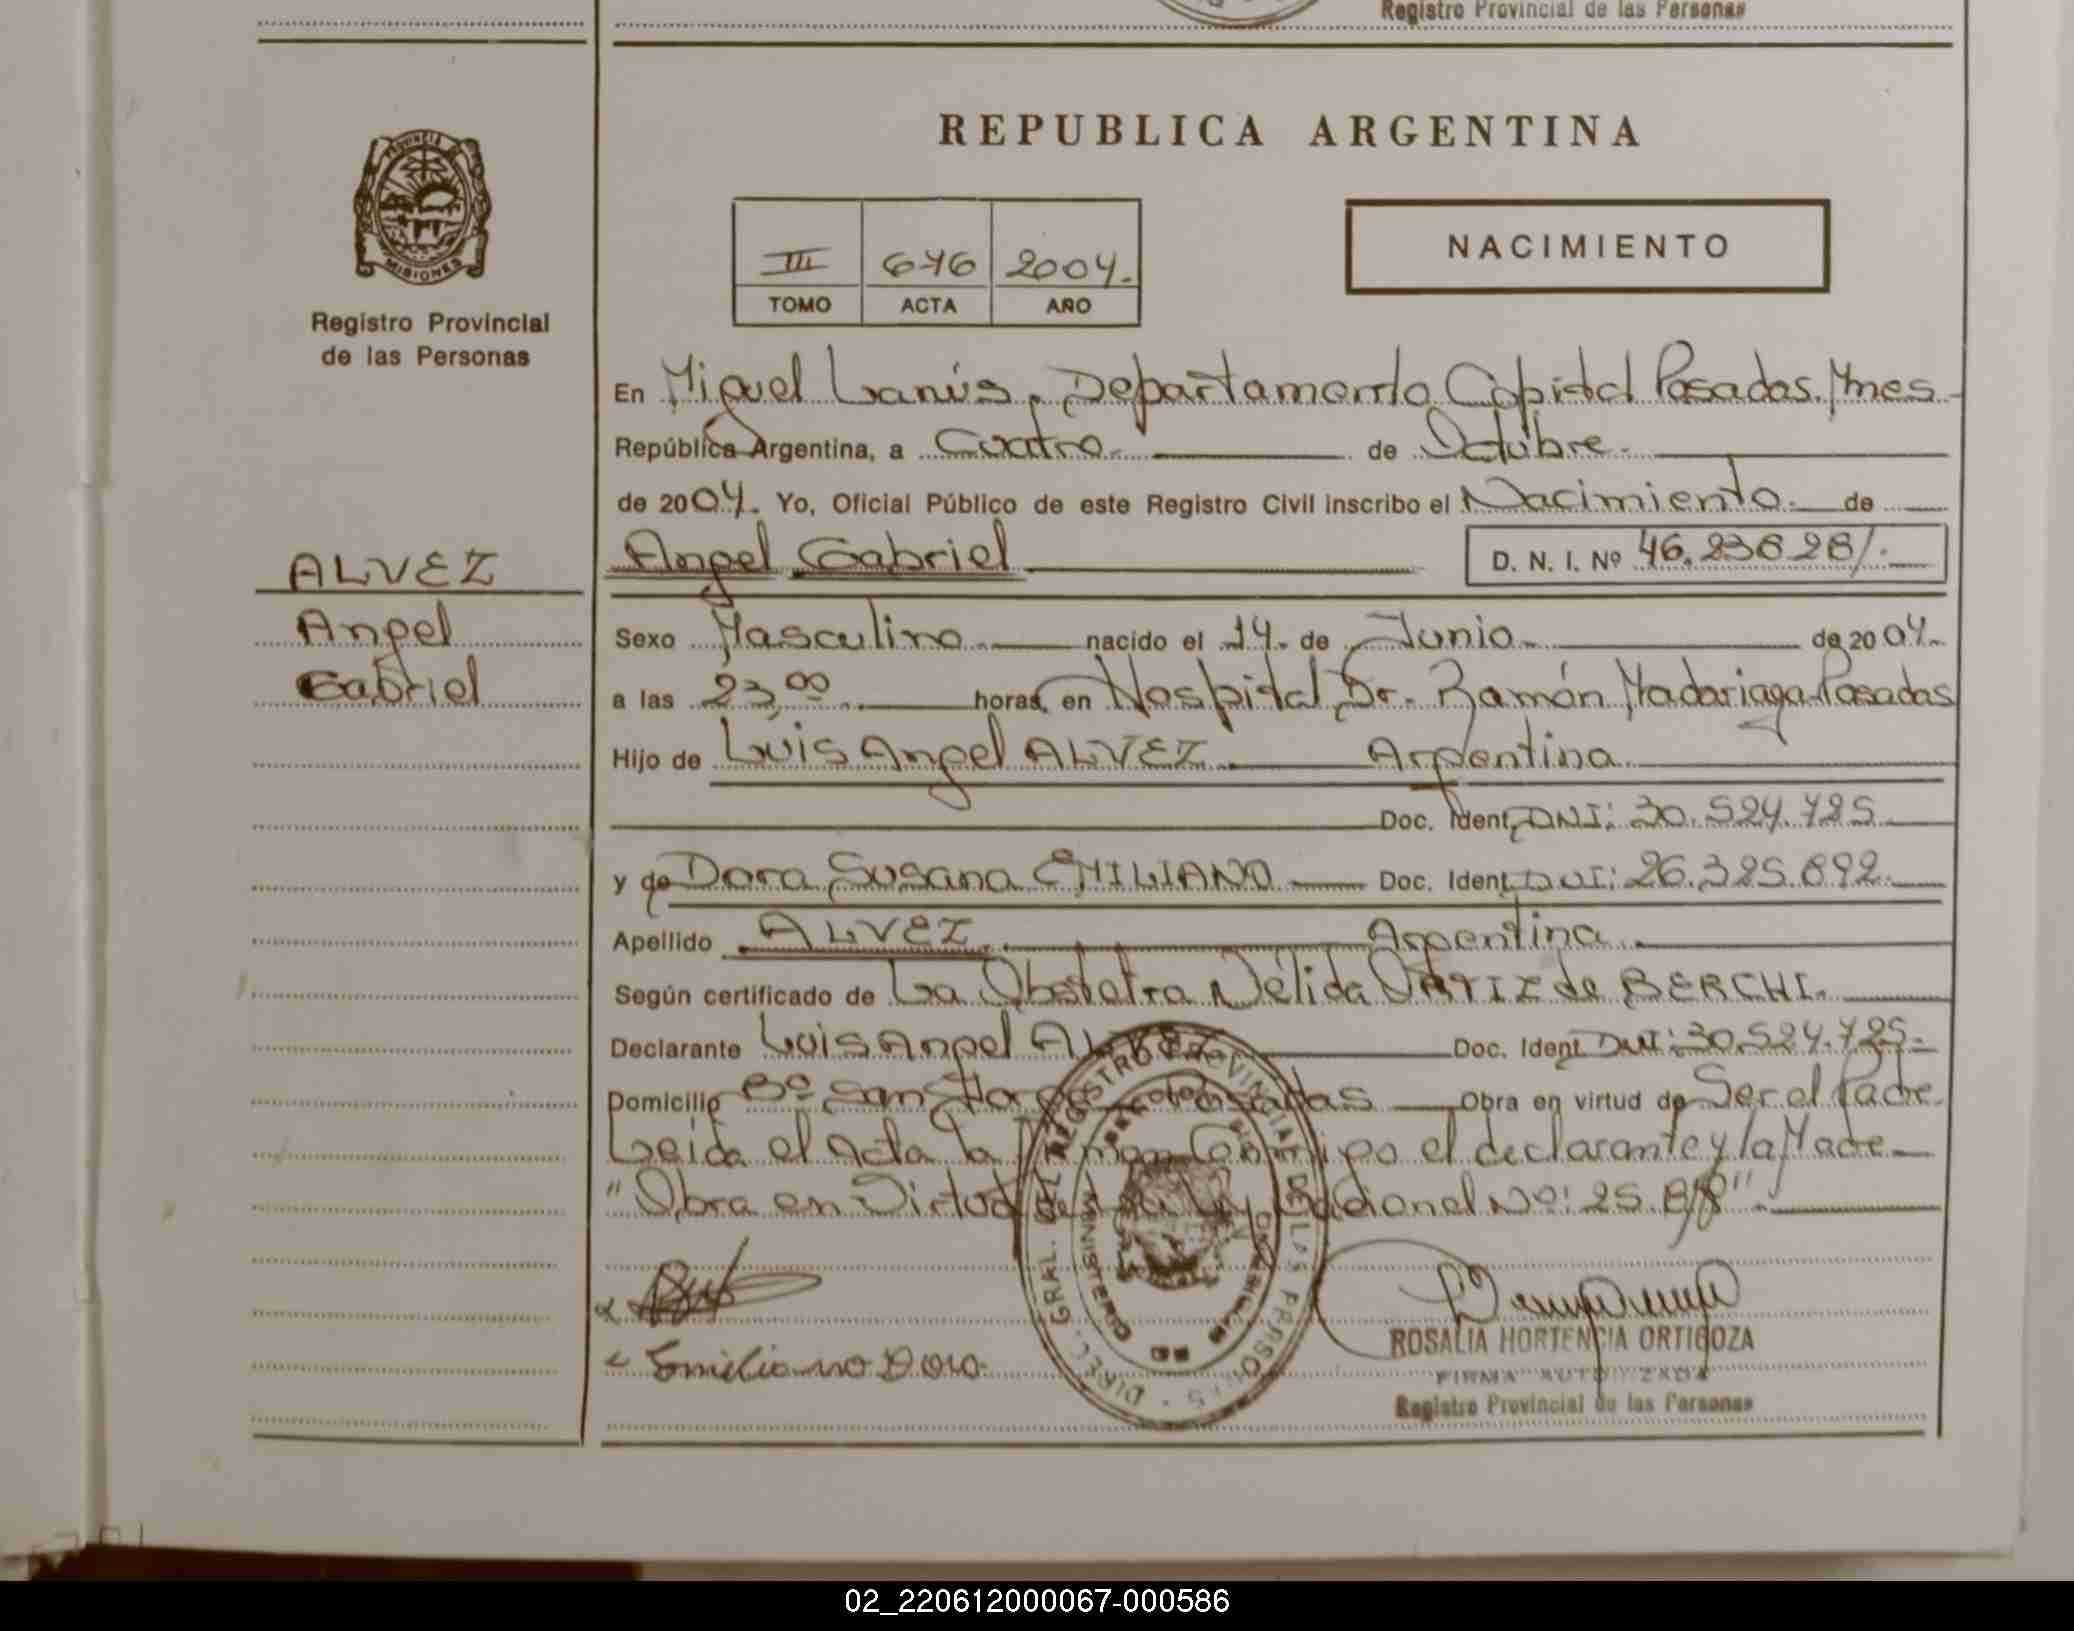 Registro Provincial de las Personas
REPUBLICA ARGENTINA
PROVINCIA DE
MISIONES
Registro Provincial
de las Personas
III 676 2004.
TOMO ACTA AÑO
NACIMIENTO
En Miguel Lanús, Departamento Capital Posadas, Mnes.
República Argentina, a Cuatro. de Octubre.
de 2004. Yo, Oficial Público de este Registro Civil inscribo el Nacimiento. de
Angel Gabriel
D. N. I. Nº
ALVEZ
Angel
Gabriel
Sexo Masculino. nacido el 14. de Junio. de 2004.
a las 23,00 horas, en Hospital Dr. Ramón Madariaga-Posadas
Hijo de Luis Angel ALVEZ. Argentina.
Doc. Ident. DNI: 30.524.725
y de Dora Susana EMILIANO Doc. Ident. DNI: 26.325.692.
Apellido ALVEZ. Argentina.
Según certificado de La Obstetra Nélida ORTIZ de BERCHI.
Declarante Luis Angel ALVEZ Doc. Ident. DNI: 30.524.725.
Domicilio Bº San Posadas Obra en virtud de Ser el Padre
Leída el Acta la Firman Conmigo el declarante y la Madre
"Obra en Virtud de la Ley Nacional Nº: 25.818".
Emiliano Dora
DIREC. GRAL. DEL REGISTRO PROVINCIAL DE LAS PERSONAS
MINISTERIO DE
ROSALIA HORTENCIA ORTIGOZA
FIRMA AUTORIZADA
Registro Provincial de las Personas
02_220612000067-000586